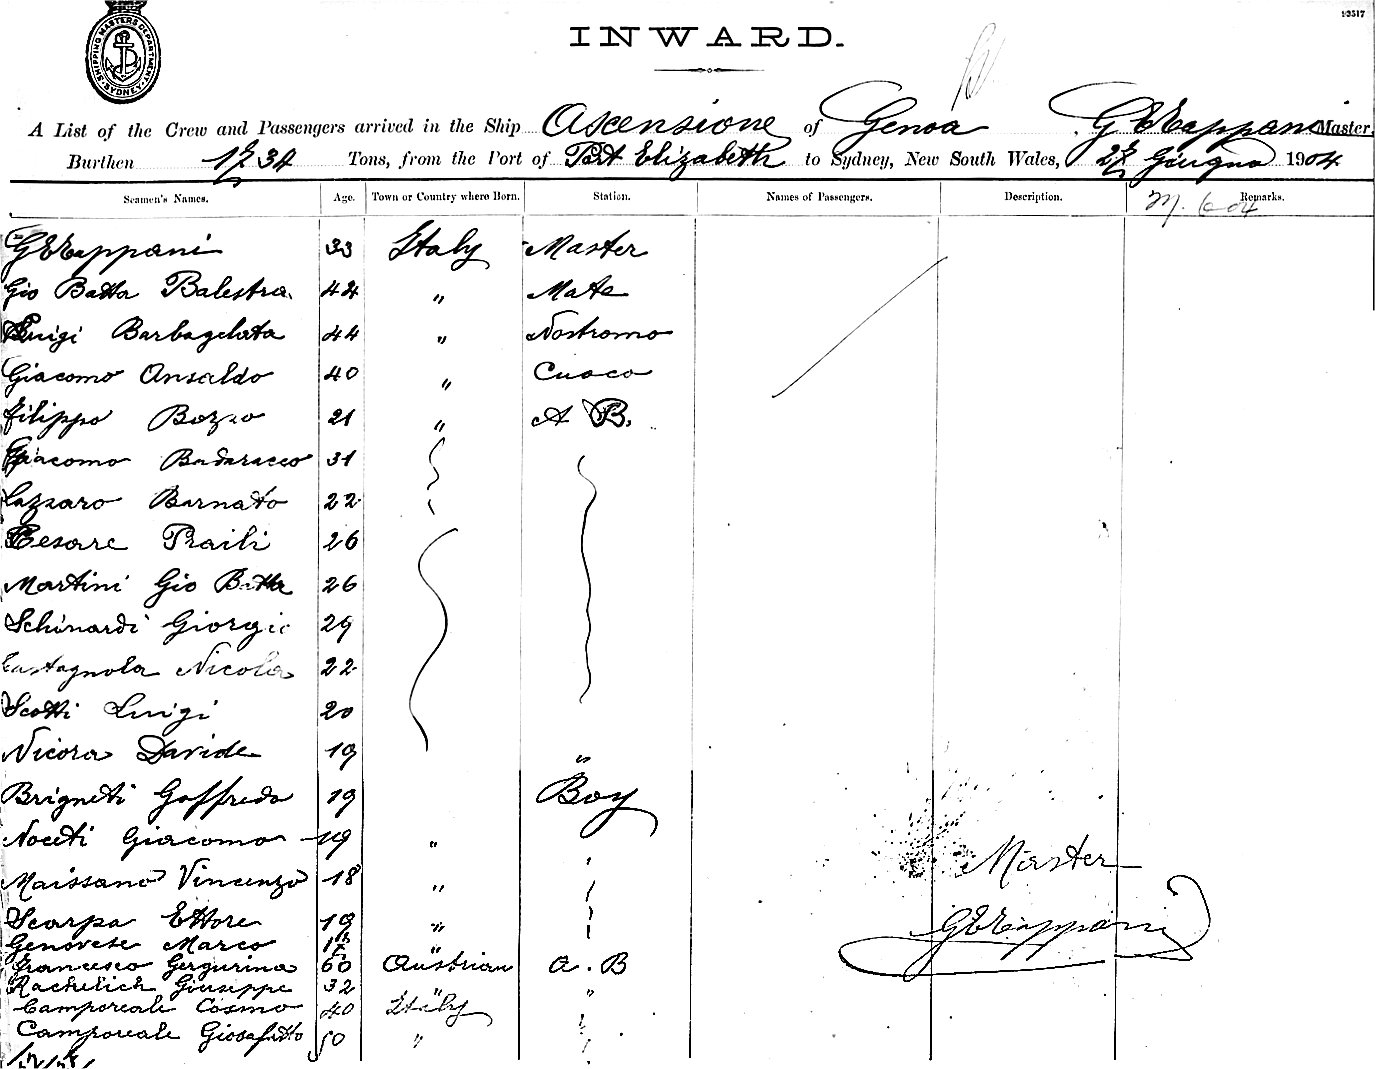 93517
SHIPPING MASTERS DEPARTMENT SYDNEY
INWARD.
A List of the Crew and Passengers arrived in the Ship Ascensione of Genoa G E Cappani Master,
Burthen 1234 Tons, from the Port of Port Elizabeth to Sydney, New South Wales, 22 Giugno 1904
Seamen's Names. Age. Town or Country where Born. Station. Names of Passengers. Description. Remarks.
G E Cappani 33 Italy Master
Gio Batta Balestra 42 " Mate
Luigi Barbagelata 44 " Nostromo
Giacomo Ansaldo 40 " Cuoco
Filippo Bozzo 21 " A B.
Giacomo Badaracco 31
Lazzaro Barnato 22
Cesare Praili 26
Martini Gio Batta 26
Schinardi Giorgio 29
Castagnola Nicola 22
Scotti Luigi 20
Nicora Davide 19 "
Brigneti Goffredo 19 Boy
Noceti Giacomo 19 "
Maissano Vincenzo 18 "
Scarpa Ettore 19 "
Genovese Marco "
Francesco Gergurina 60 Austrian A. B
Rachelich Giuseppe 32 " "
Camporeale Cosmo 40 Italy
Camporeale Giosafatto 50 "
Master
G E Cappani